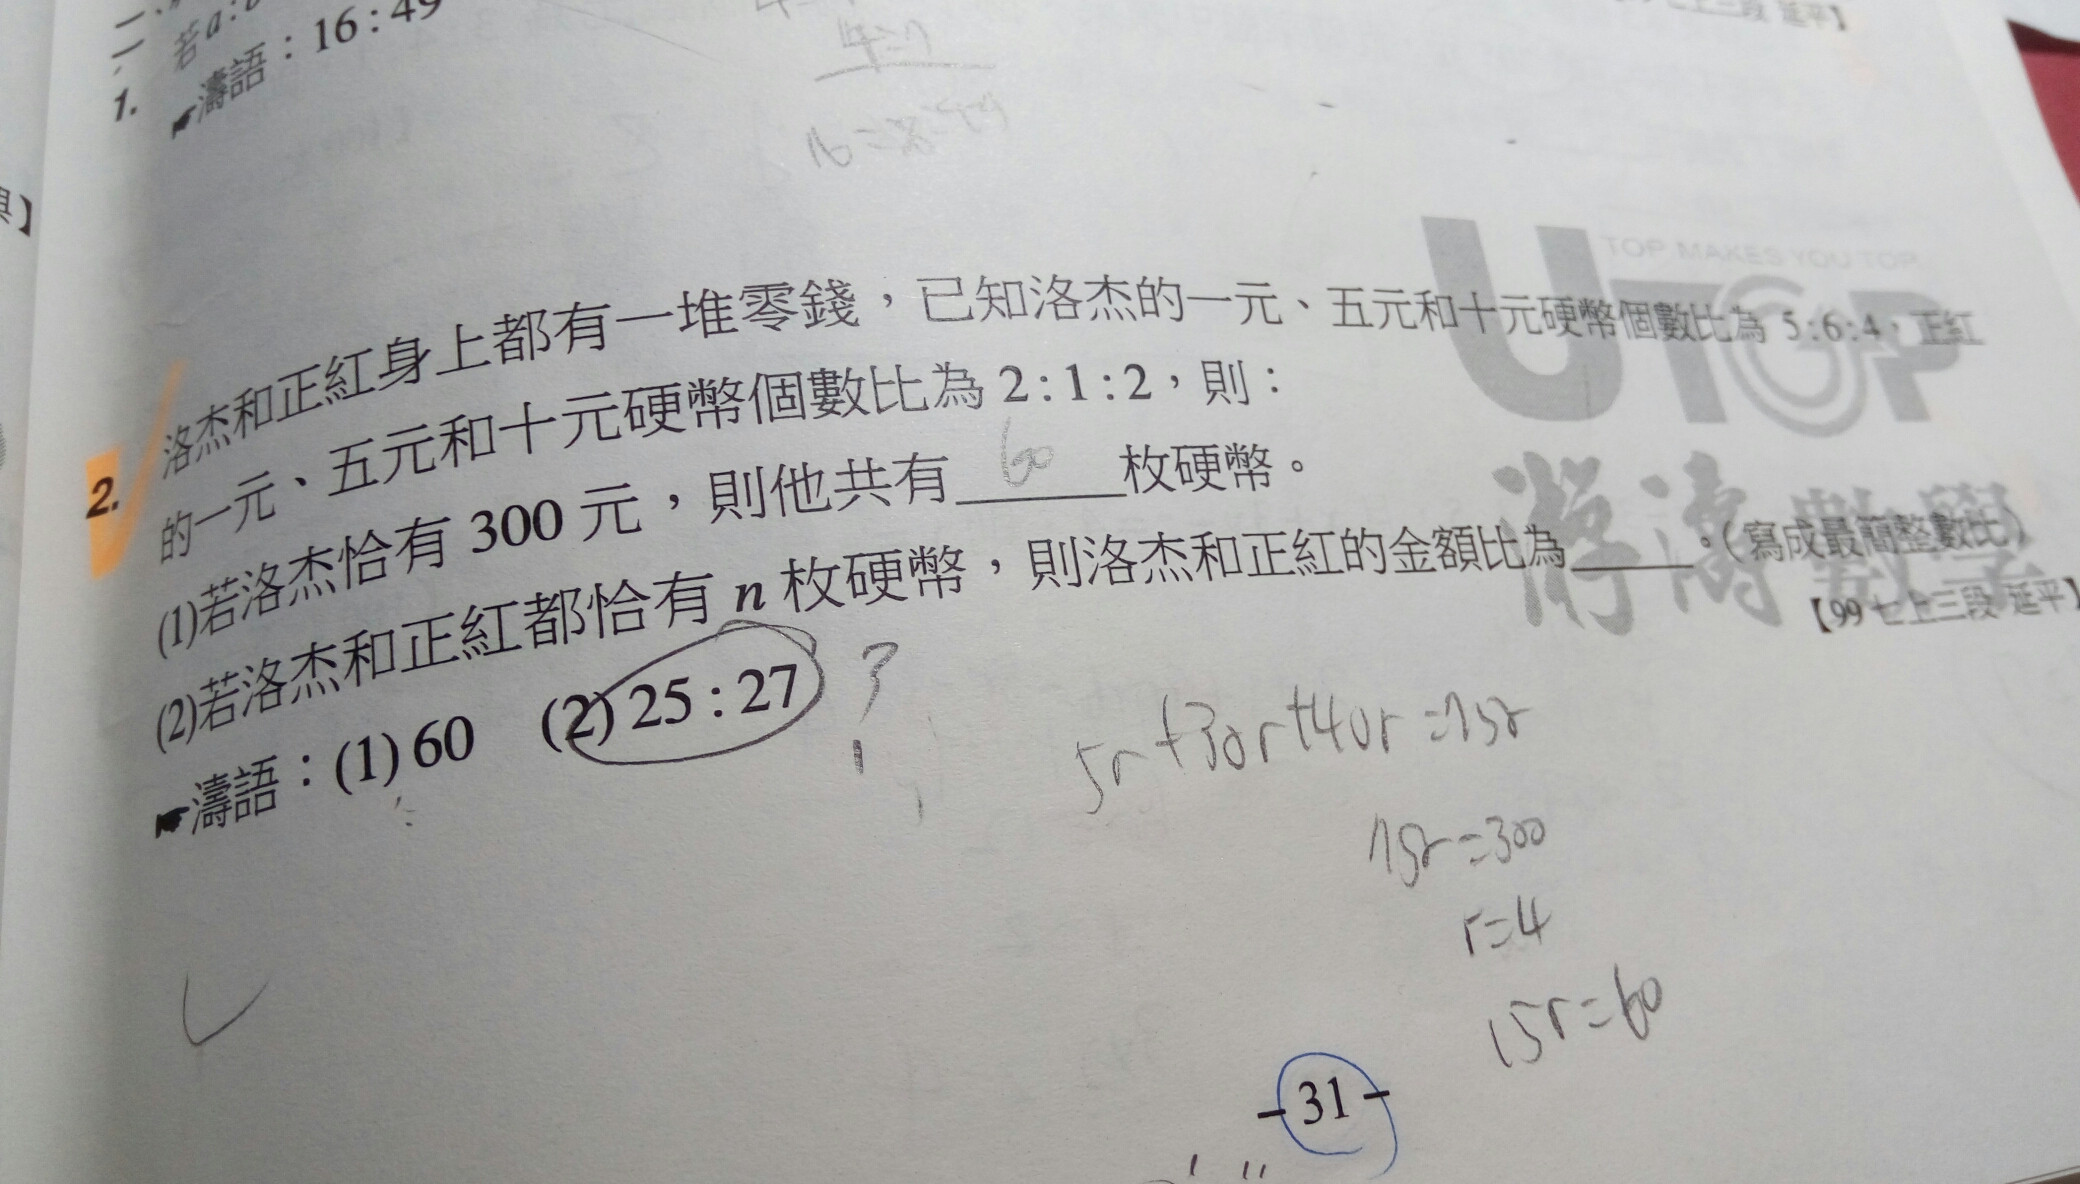 若a:b
1.
☛濤語：16:49
七上三段 延平】
與】
TOP MAKES YOU TOP
UTOP
數學
2.
洛杰和正紅身上都有一堆零錢，已知洛杰的一元、五元和十元硬幣個數比為 5:6:4，正紅
的一元、五元和十元硬幣個數比為 2:1:2，則：
(1)若洛杰恰有 300 元，則他共有 60 枚硬幣。
(2)若洛杰和正紅都恰有 n 枚硬幣，則洛杰和正紅的金額比為______。（寫成最簡整數比）
【99 七上三段 延平】
☛濤語：(1) 60 (2) 25:27 ?
5r+30r+40r=75r
75r=300
r=4
15r=60
-31-